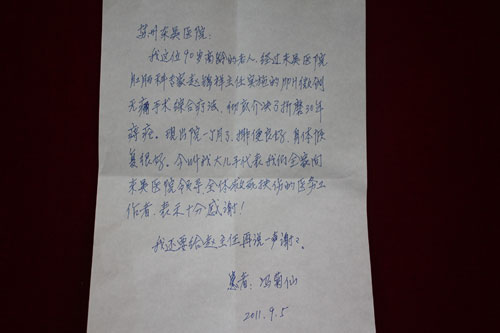 苏州东吴医院:
我这位90岁高龄的老人,经过东吴医院
肛肠科专家赵锦祥主任实施的PPH微创
无痛手术综合疗法,彻底介决了折磨30年
痔疮。现出院一个月了,排便良好,身体恢
复很好。今叫我大儿子代表我们全家向
东吴医院领导全体救死扶伤的医务工
作者,表示十分感谢!
我还要给赵主任再说一声谢谢。
患者:冯菊仙
2011.9.5